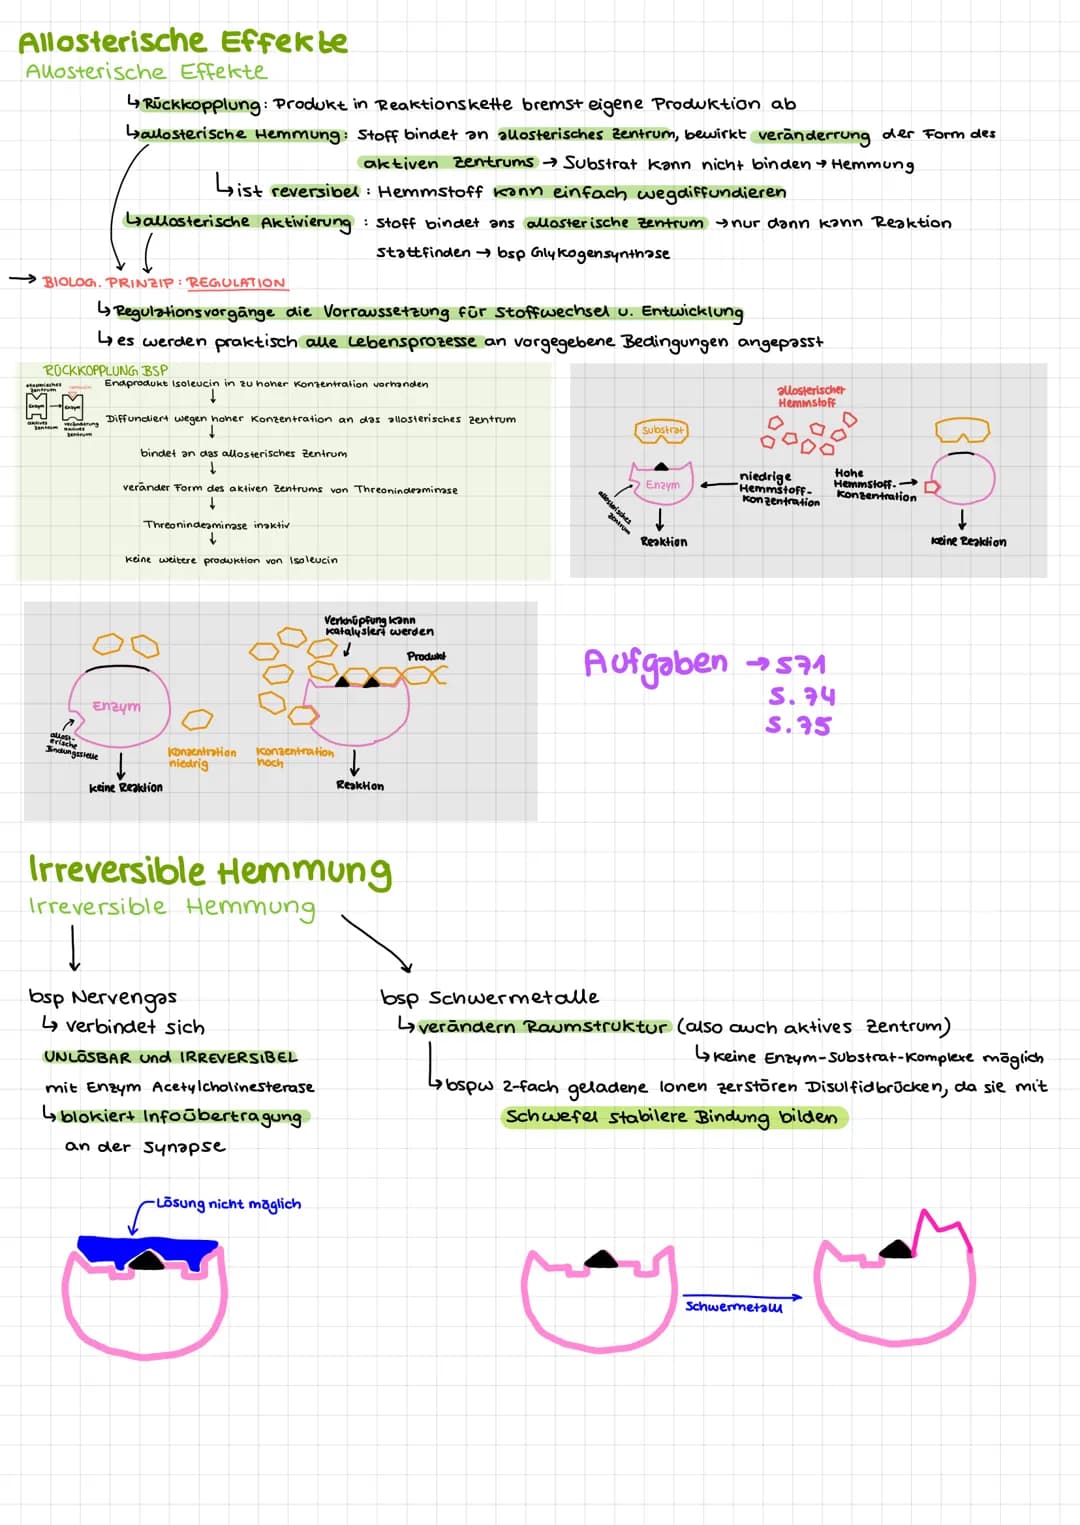 Allosterische Effekte
Allosterische Effekte
↳ Rückkopplung: Produkt in Reaktionskette bremst eigene Produktion ab
↳ allosterische Hemmung: Stoff bindet an allosterisches Zentrum, bewirkt veränderrung der Form des
aktiven Zentrums → Substrat kann nicht binden → Hemmung
↳ ist reversibel: Hemmstoff kann einfach wegdiffundieren
↳ allosterische Aktivierung: Stoff bindet ans allosterische Zentrum → nur dann kann Reaktion
stattfinden → bsp Glykogensynthase
→ BIOLOG. PRINZIP: REGULATION
↳ Regulationsvorgänge die Vorraussetzung für Stoffwechsel u. Entwicklung
↳ es werden praktisch alle Lebensprozesse an vorgegebene Bedingungen angepasst
RÜCKKOPPLUNG BSP
allosterisches
Zentrum
Isoleucin
Enzym
Enzym
aktives
Zentrum
veränderung
aktives
Zentrum
Endprodukt Isoleucin in zu hoher Konzentration vorhanden
↓
Diffundiert wegen hoher Konzentration an das allosterisches Zentrum
↓
bindet an das allosterisches Zentrum
↓
veränder Form des aktiven Zentrums von Threonindeaminase
↓
Threonindeaminase inaktiv
↓
keine weitere produktion von Isoleucin
allosterischer
Hemmstoff
Substrat
Enzym
allosterisches
Zentrum
Reaktion
niedrige
Hemmstoff-
Konzentration
Hohe
Hemmstoff-
Konzentration
keine Reaktion
Enzym
allost-
erische
Bindungsstelle
keine Reaktion
Konzentration
niedrig
Konzentration
hoch
Verknüpfung kann
katalysiert werden
Produkt
Reaktion
Aufgaben → S71
S. 74
S. 75
Irreversible Hemmung
Irreversible Hemmung
bsp Nervengas
↳ verbindet sich
UNLÖSBAR und IRREVERSIBEL
mit Enzym Acetylcholinesterase
↳ blokiert Infoübertragung
an der Synapse
bsp Schwermetalle
↳ verändern Raumstruktur (also auch aktives Zentrum)
↳ keine Enzym-Substrat-Komplexe möglich
↳ bspw 2-fach geladene Ionen zerstören Disulfidbrücken, da sie mit
Schwefel stabilere Bindung bilden
Lösung nicht möglich
Schwermetall